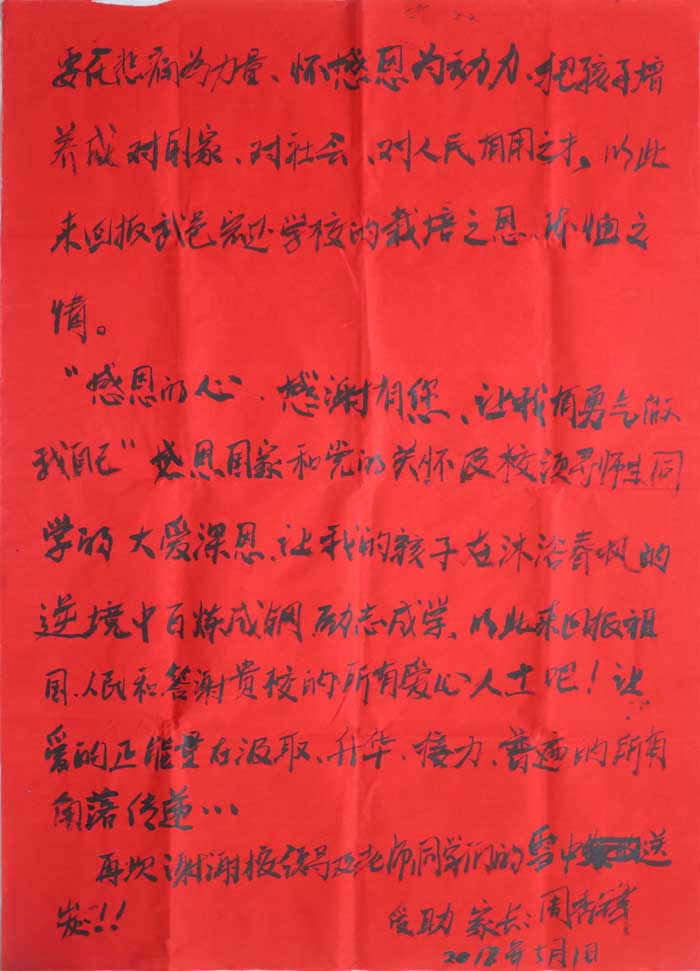 要在悲痛为力量、怀感恩为动力、把孩子培
养成对国家、对社会、对人民有用之才。以此
来回报武邑宏达学校的栽培之恩、体恤之
情。
“感恩的心、感谢有您、让我有勇气做
我自己”感恩国家和党的关怀及校领导师生同
学的大爱深恩、让我的孩子在沐浴春风的
逆境中百炼成钢励志成学、以此来回报祖
国、人民和答谢贵校的所有爱心人士吧！让
爱的正能量在汲取、升华、接力、普遍的所有
角落传递…
再次谢谢校领导及老师同学们的雪中送
炭！！
受助家长：周香祥
2018年5月1日